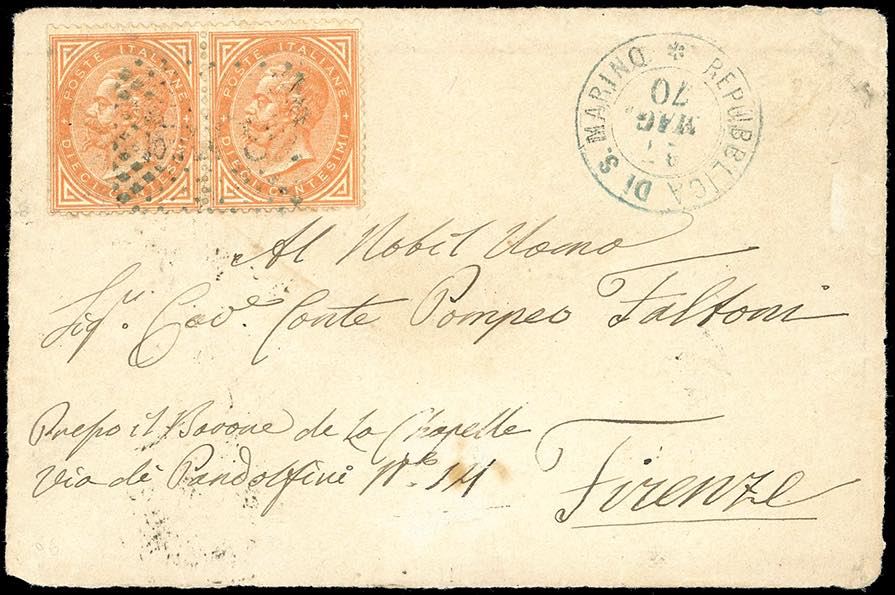 POSTE ITALIANE
DIECI CENTESIMI
POSTE ITALIANE
DIECI CENTESIMI
REPUBBLICA DI S. MARINO
MAG.
70
Al Nobil Uomo
Sigr. Cave. Conte Pompeo Faltoni
Presso il Barone de La Chapelle
Via de Pandolfini No. 14
Firenze